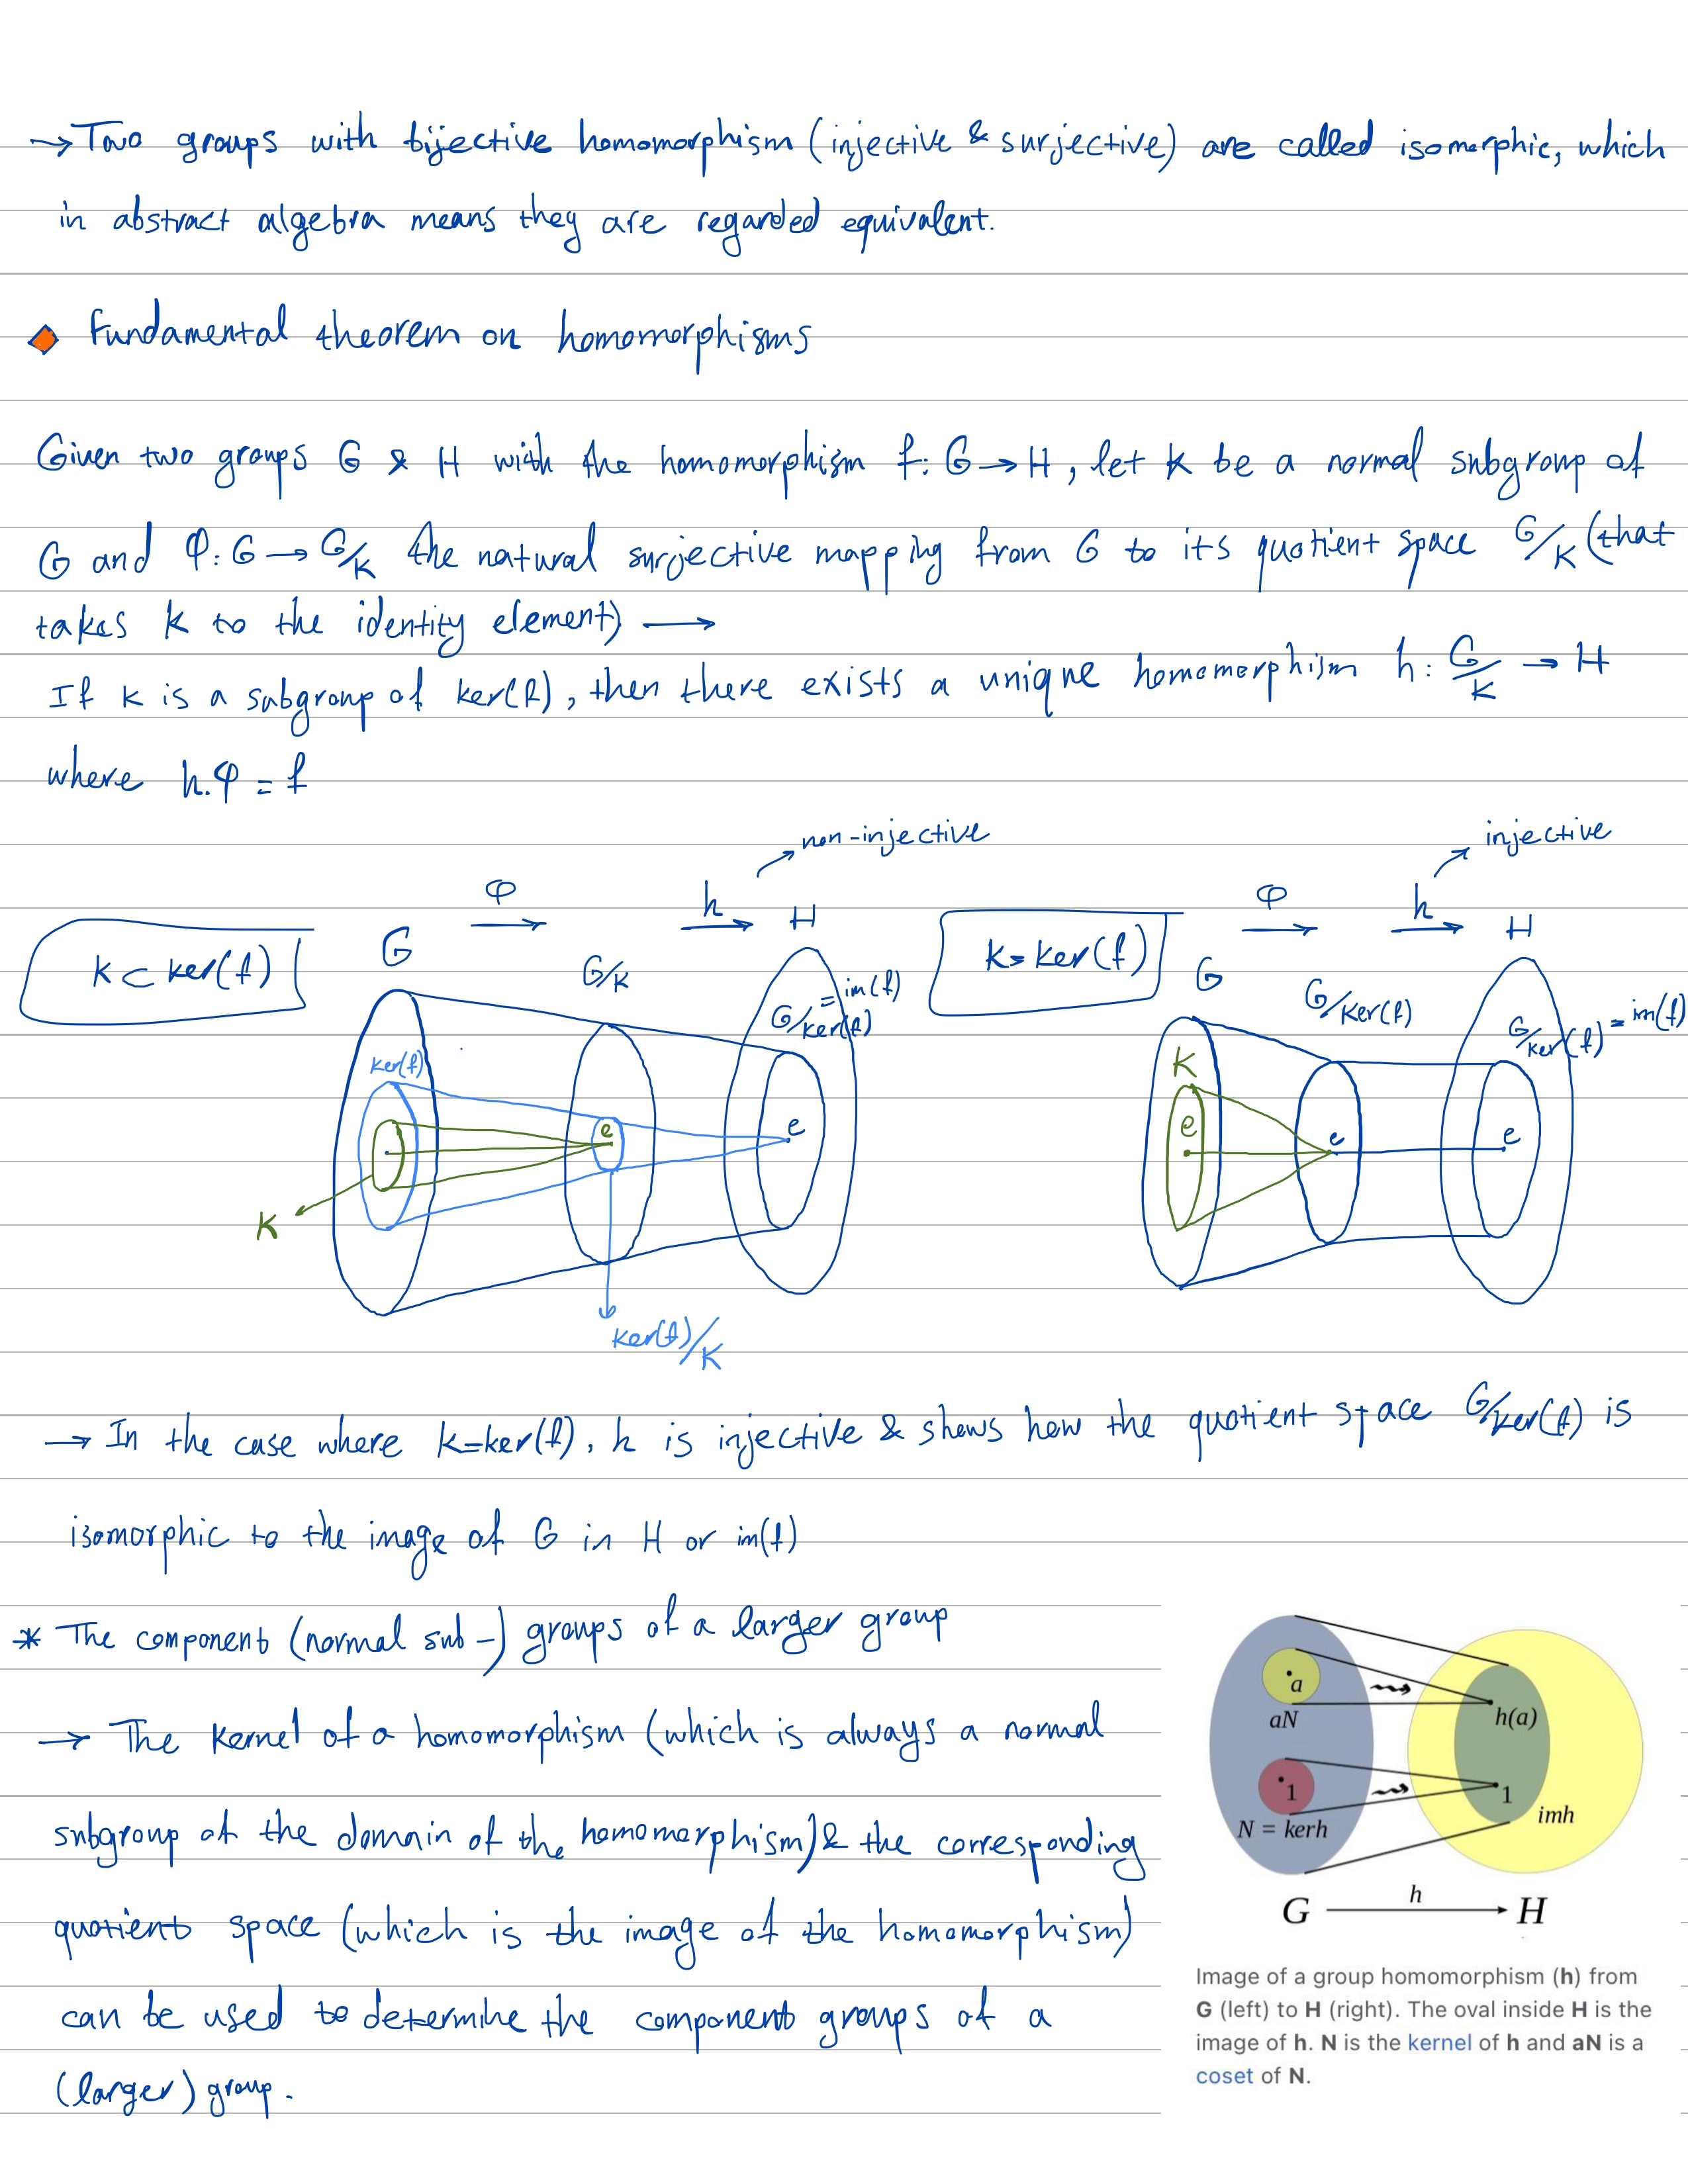 → Two groups with bijective homomorphism (injective & surjective) are called isomorphic, which
in abstract algebra means they are regarded equivalent.
Fundamental theorem on homomorphisms
Given two groups G & H with the homomorphism f: G → H, let K be a normal subgroup of
G and φ: G → G/K the natural surjective mapping from G to its quotient space G/K (that
takes K to the identity element) →
If K is a subgroup of ker(f), then there exists a unique homomorphism h: G/K → H
where h.φ = f
non-injective
φ
h
H
K ⊂ ker(f)
G
G/K
= im(f)
G/ker(f)
ker(f)
e
e
K
ker(f)/K
injective
φ
h
H
K = ker(f)
G
G/ker(f)
G/ker(f) = im(f)
K
e
e
e
→ In the case where K=ker(f), h is injective & shows how the quotient space G/ker(f) is
isomorphic to the image of G in H or im(f)
* The component (normal sub-) groups of a larger group
→ The kernel of a homomorphism (which is always a normal
subgroup of the domain of the homomorphism) & the corresponding
quotient space (which is the image of the homomorphism)
can be used to determine the component groups of a
(larger) group.
a
aN
h(a)
1
1
N = kerh
imh
h
G
H
Image of a group homomorphism (h) from
G (left) to H (right). The oval inside H is the
image of h. N is the kernel of h and aN is a
coset of N.